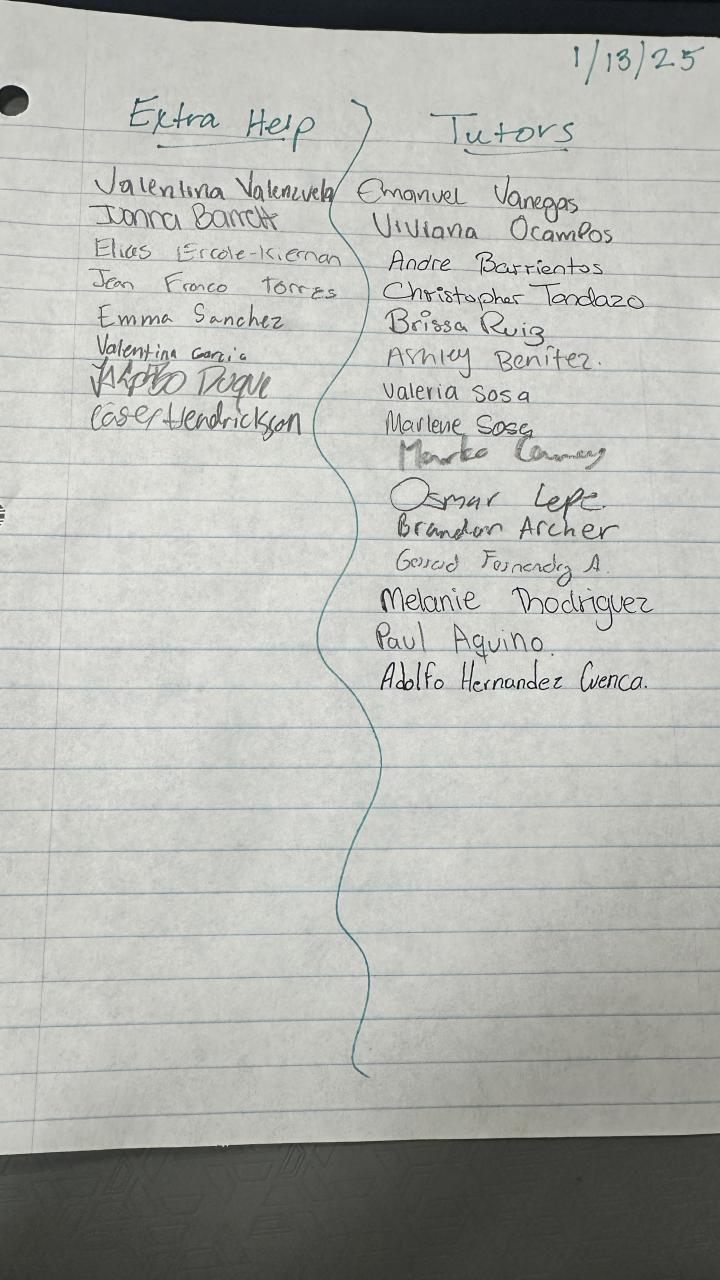 1/13/25
Extra Help
Valentina Valenzuela
Barrett
Elias Ercole-Kiernan
Jean Franco Torres
Emma Sanchez
Valentina Garcia
Duque
Casey Hendrickson
Tutors
Emanuel Vanegas
Viviana Ocampos
Andre Barrientos
Christopher Tandazo
Brissa Ruiz
Ashley Benítez.
Valeria Sosa
Marlene Sosa
Osmar Lepe
Brandon Archer
A.
Melanie Rhodriguez
Paul Aquino.
Adolfo Hernandez Cuenca.